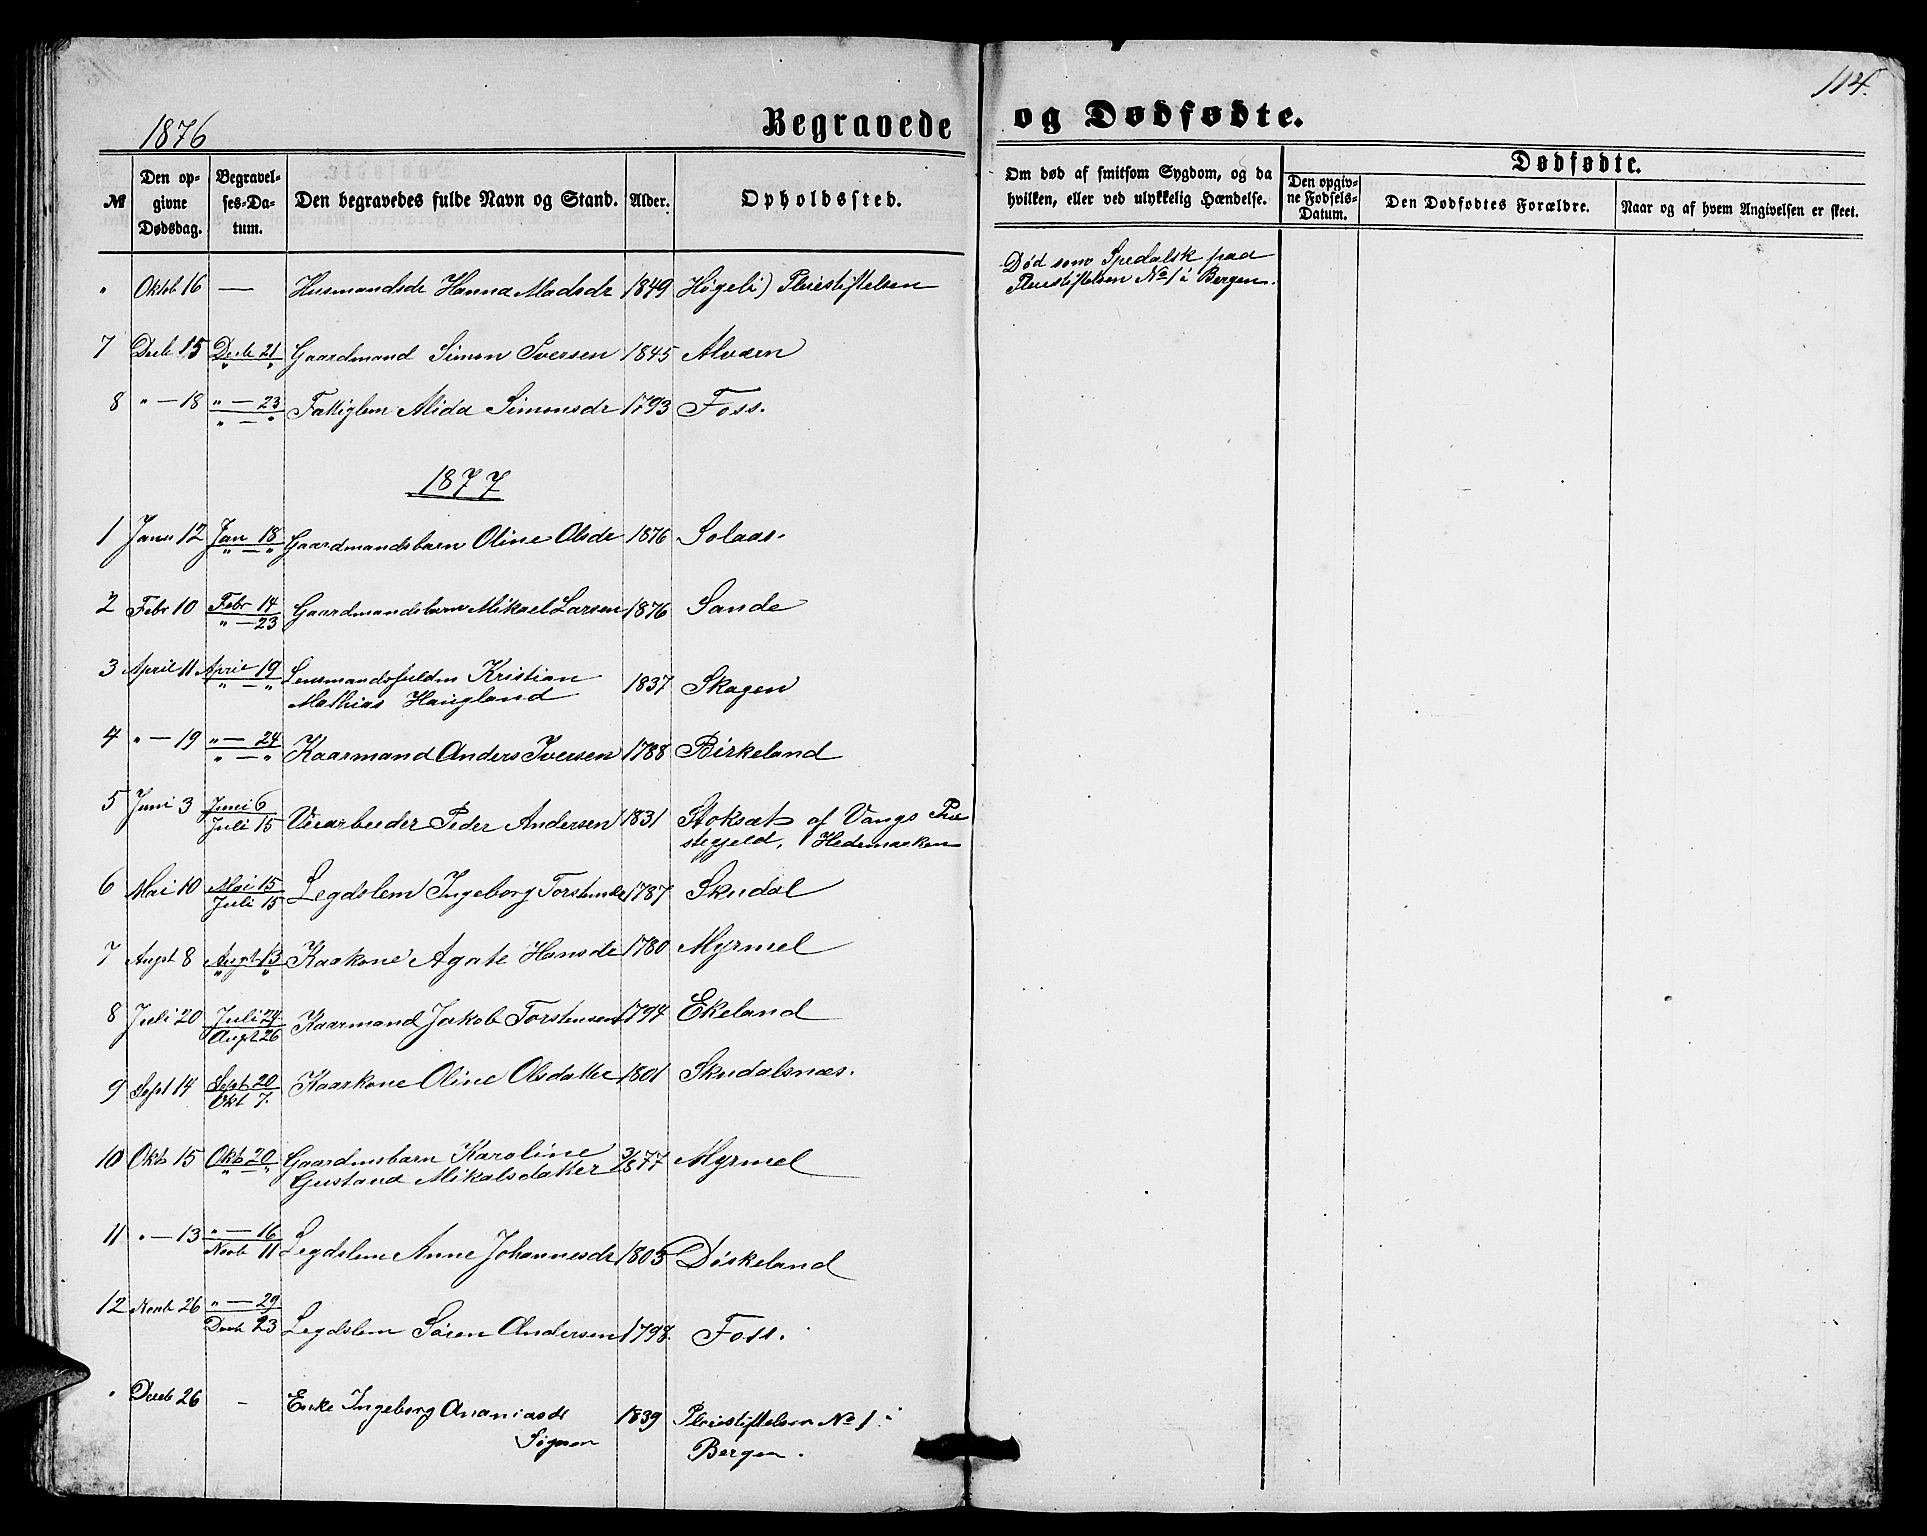 114.
1876
Begravede og Dødfødte.
№
Den opgivne Dødsdag.
Begravelses-Datum.
Den begravedes fulde Navn og Stand.
Alder.
Opholdssted.
Om død af smitsom Sygdom, og da hvilken, eller ved ulykkelig Hændelse.
Dødfødte.
Den opgivne Fødsels-Datum.
Den Dødfødtes Forældre.
Naar og af hvem Angivelsen er skeet.
" Oktob 16 — Husmandsdr Hanna Madsdr 1849 Høgeli) Pleiestiftelsen
Død som Spedalsk paa
Pleiestiftelsen No 1 i Bergen.
7 Decb 15 Decb 21 " " Gaardmand Simon Iversen 1845 Alværen
8 " — 18 " — 23 " — " Fattiglem Alida Simonsdr 1793 Foss.
1877
1 Janu 12 Jan 18 " — " Gaardmandsbarn Oline Olsdr 1876 Solaas.
2 Febr 10 Febr 14 " — 23 Gaardmandsbarn Mikael Larsen 1876 Sande
3 April 11 April 19 " — " Lensmandsfuldm Kristian
Mathias Haugland 1837 Skagen
4 " — 19 " — 24 " — " Kaarmand Anders Iversen 1788 Birkeland
5 Juni 3 Juni 6 Juli 15 Veiarbeider Peder Andersen 1831 Stoksæt af Vangs Præ
stegjeld, Hedemarken
6 Mai 10 Mai 15 Juli 15 Legdslem Ingeborg Torstensdr 1787 Skudal
7 Augst 8 Augst 13 " " Kaarkone Agate Hansdr 1780 Myrmel
8 Juli 20 Juli 24 Augst 26 Kaarmand Jakob Torstensen 1794 Ekeland
9 Sept 14 Sept 20 Okt 7. Kaarkone Oline Olsdatter 1801 Skudalsnæs.
10 Oktb 15 Oktb 20 " — " Gaardmsbarn Karoline
Gustava Mikalsdatter 1877 Myrmel
11 " — 13 " — 16 Novb 11 Legdslem Anne Johannesdr 1805 Døskeland
12 Novb 26 " — 29 Decb 23 Legdslem Søren Andersen 1798. Foss.
" Decb 26 - Enke Ingeborg Ananiasdr
Sögnen 1839 Pleiestiftelsen No 1 i
Bergen.